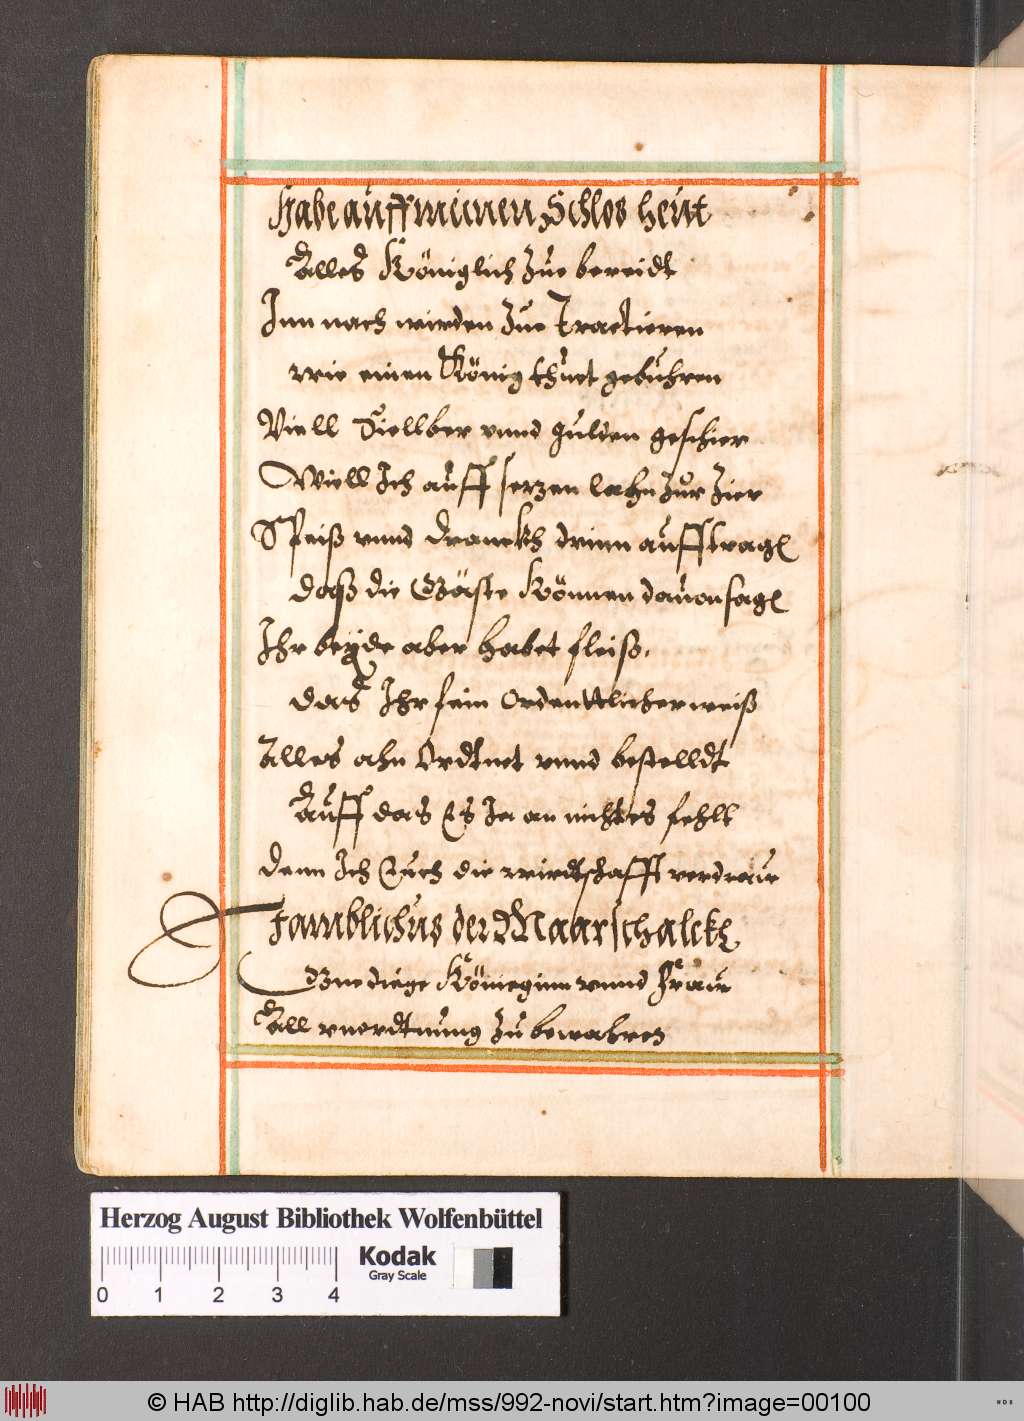 Habe auff meinen Schlos heut
Alles Königlich Zue bereidt
Inn nach wirden Zue Tractieren
wie einen König thuet gebuhren
Viell Siellber vnnd gulden geschier
Wiell Ich auff sezen lahn Zur Zier
Speiß vnnd dranckh drinn aufftragen
daß die Gäste Können dauon sagen
Ihr beyde aber habet fleiß.
das Ihr fein Ordenttlicherweiß
Alles ahn Ordtnet vnnd bestelldt
Auff das Es Ja an nichtes fehlt
dann Ich Euch die wirdtschafft verdraue
Jamblichus der Maarschalckh
Gnediege Könieginn vnnd Fraue
All vnordtnung Zu bewahren
Herzog August Bibliothek Wolfenbüttel
Kodak
Gray Scale
0 1 2 3 4
© HAB http://diglib.hab.de/mss/992-novi/start.htm?image=00100